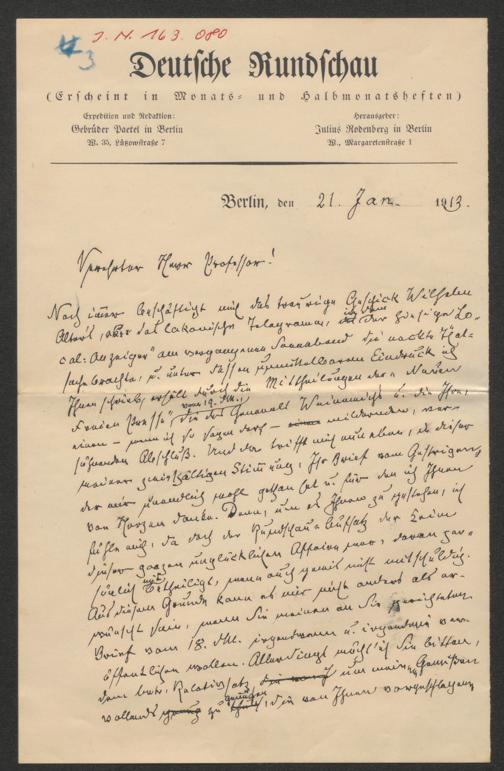 J. N. 163 080
3
Deutsche Rundschau
(Erscheint in Monats- und Halbmonatsheften)
Expedition und Redaktion:
Gebrüder Paetel in Berlin
W. 35, Lützowstraße 7
Herausgeber:
Julius Rodenberg in Berlin
W., Margaretenstraße 1
Berlin, den 21. Jan. 1913.
Verehrter Herr Professor!
Noch immer beschäftigt mich das traurige Geschick Wilhelm
Alters, das lakonische Telegramm, der hiesige „Lo-
cal-Anzeiger“ am vergangenen Sonnabend die nackte That-
sache brachte, u. unter dessen unmittelbarem Eindruck ich
Ihnen schrieb, erhält durch die Mittheilungen der „Neuen
Freien Presse“ (vom 19. dM.), die des Generals Woinovich u. die Ihre,
einen – wenn ich so sagen darf – mildernden, ver-
söhnenden Abschluß. Und da trifft mich nun eben, in dieser
meiner zwiespältigen Stimmung, Ihr Brief vom Gestrigen,
der mir unendlich wohl gethan hat u. für den ich Ihnen
von Herzen danke. Denn, um es Ihnen zu gestehen, ich
fühle mich, da doch der Rundschau-Aufsatz der Keim
dieser ganzen unglücklichen Affaire war, daran per-
sönlich mit betheiligt, wenn auch gewiß nicht mitschuldig.
Aus diesem Grunde kann es mir nicht anders als er-
wünscht sein, wenn Sie meinen an Sie gerichteten
Brief vom 18. dM. irgendwann u. irgendwie ver-
öffentlichen wollen. Allerdings möcht' ich Sie bitten,
dem betr. Relativsatz um meinem Gewissen
vollends zu genügen, die von Ihnen vorgeschlagene